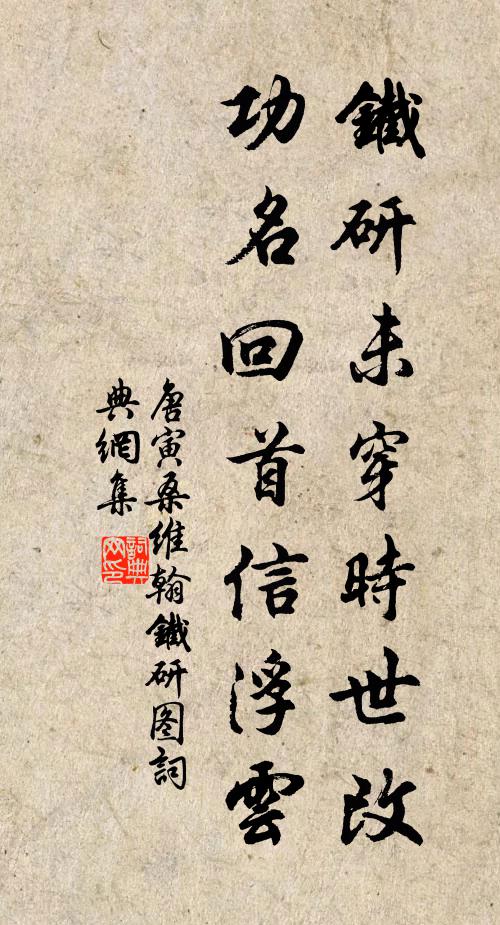 鐵研未穿時世改
功名回首信浮雲
唐寅桑維翰鐵研图詞
典網集
詞典
网印